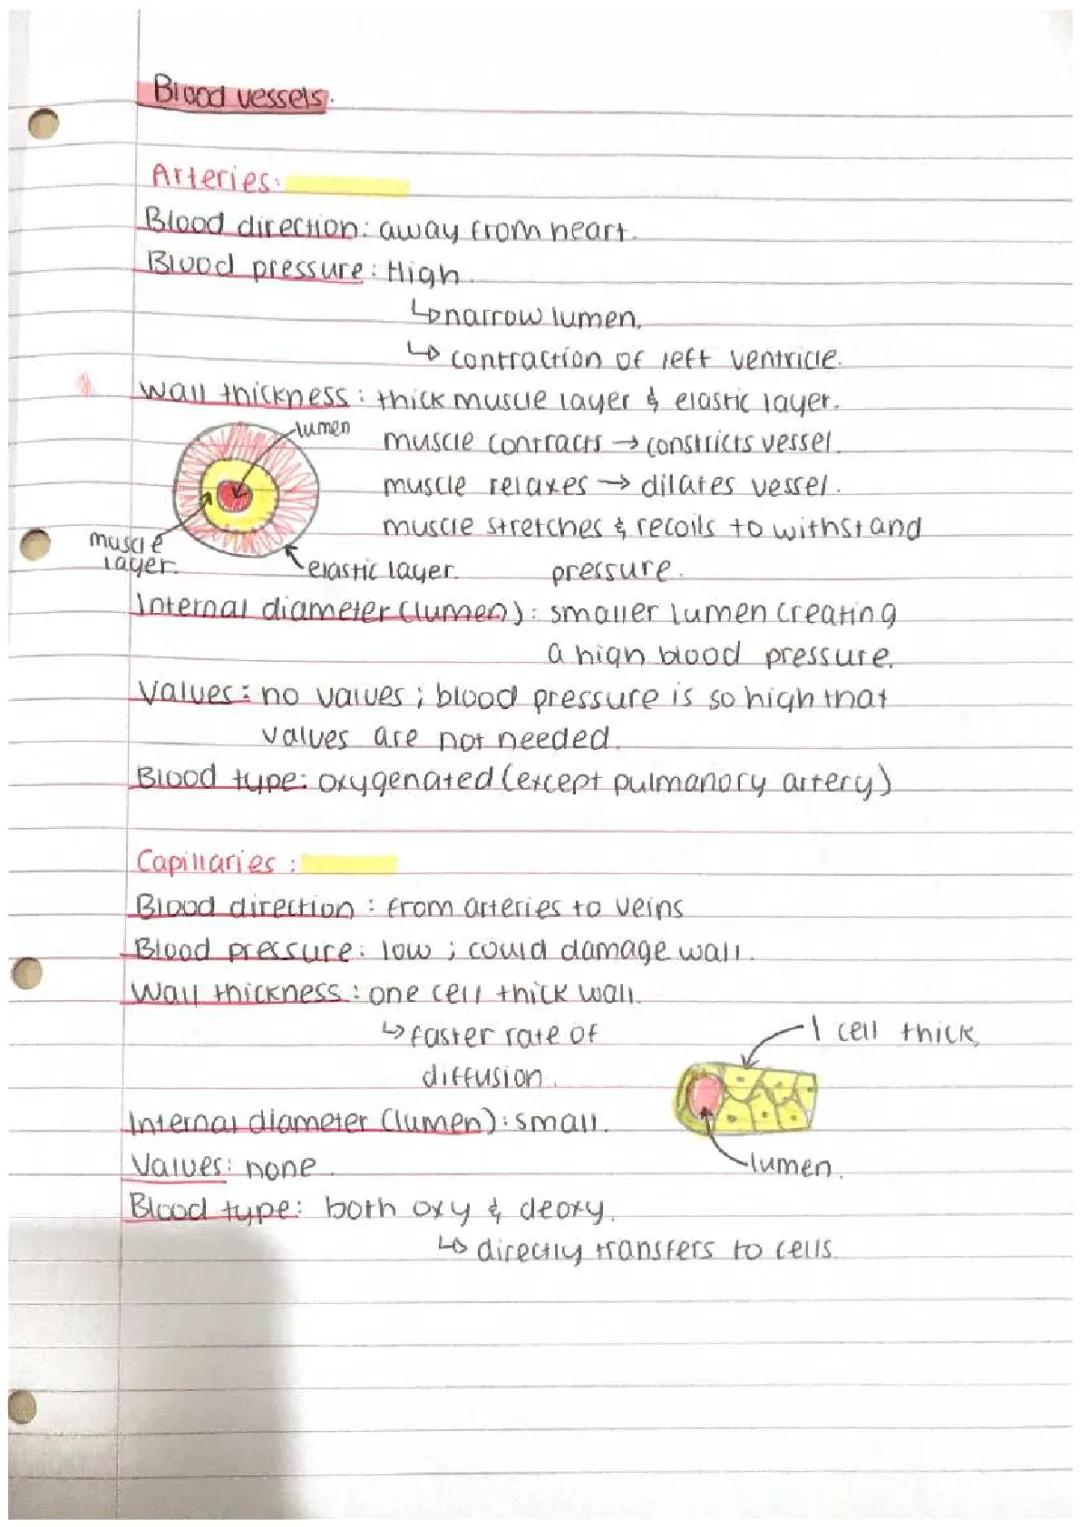 Blood vessels.
Arteries:
Blood direction: away from heart.
Blood pressure: High.
↳ narrow lumen.
↳ contraction of left ventricle.
Wall thickness: thick muscle layer & elastic layer.
lumen
muscle contracts → constricts vessel.
muscle relaxes → dilates vessel.
muscle stretches & recoils to withstand
muscle
layer.
elastic layer.
pressure.
Internal diameter (lumen): smaller lumen creating
a high blood pressure.
Valves: no valves; blood pressure is so high that
valves are not needed.
Blood type: oxygenated (except pulmanory artery)
Capillaries:
Blood direction: from arteries to veins
Blood pressure: low; could damage wall.
Wall thickness: one cell thick wall.
↳ faster rate of
1 cell thick.
diffusion.
Internal diameter (lumen): small.
lumen.
Valves: none.
Blood type: both oxy & deoxy.
↳ directly transfers to cells.